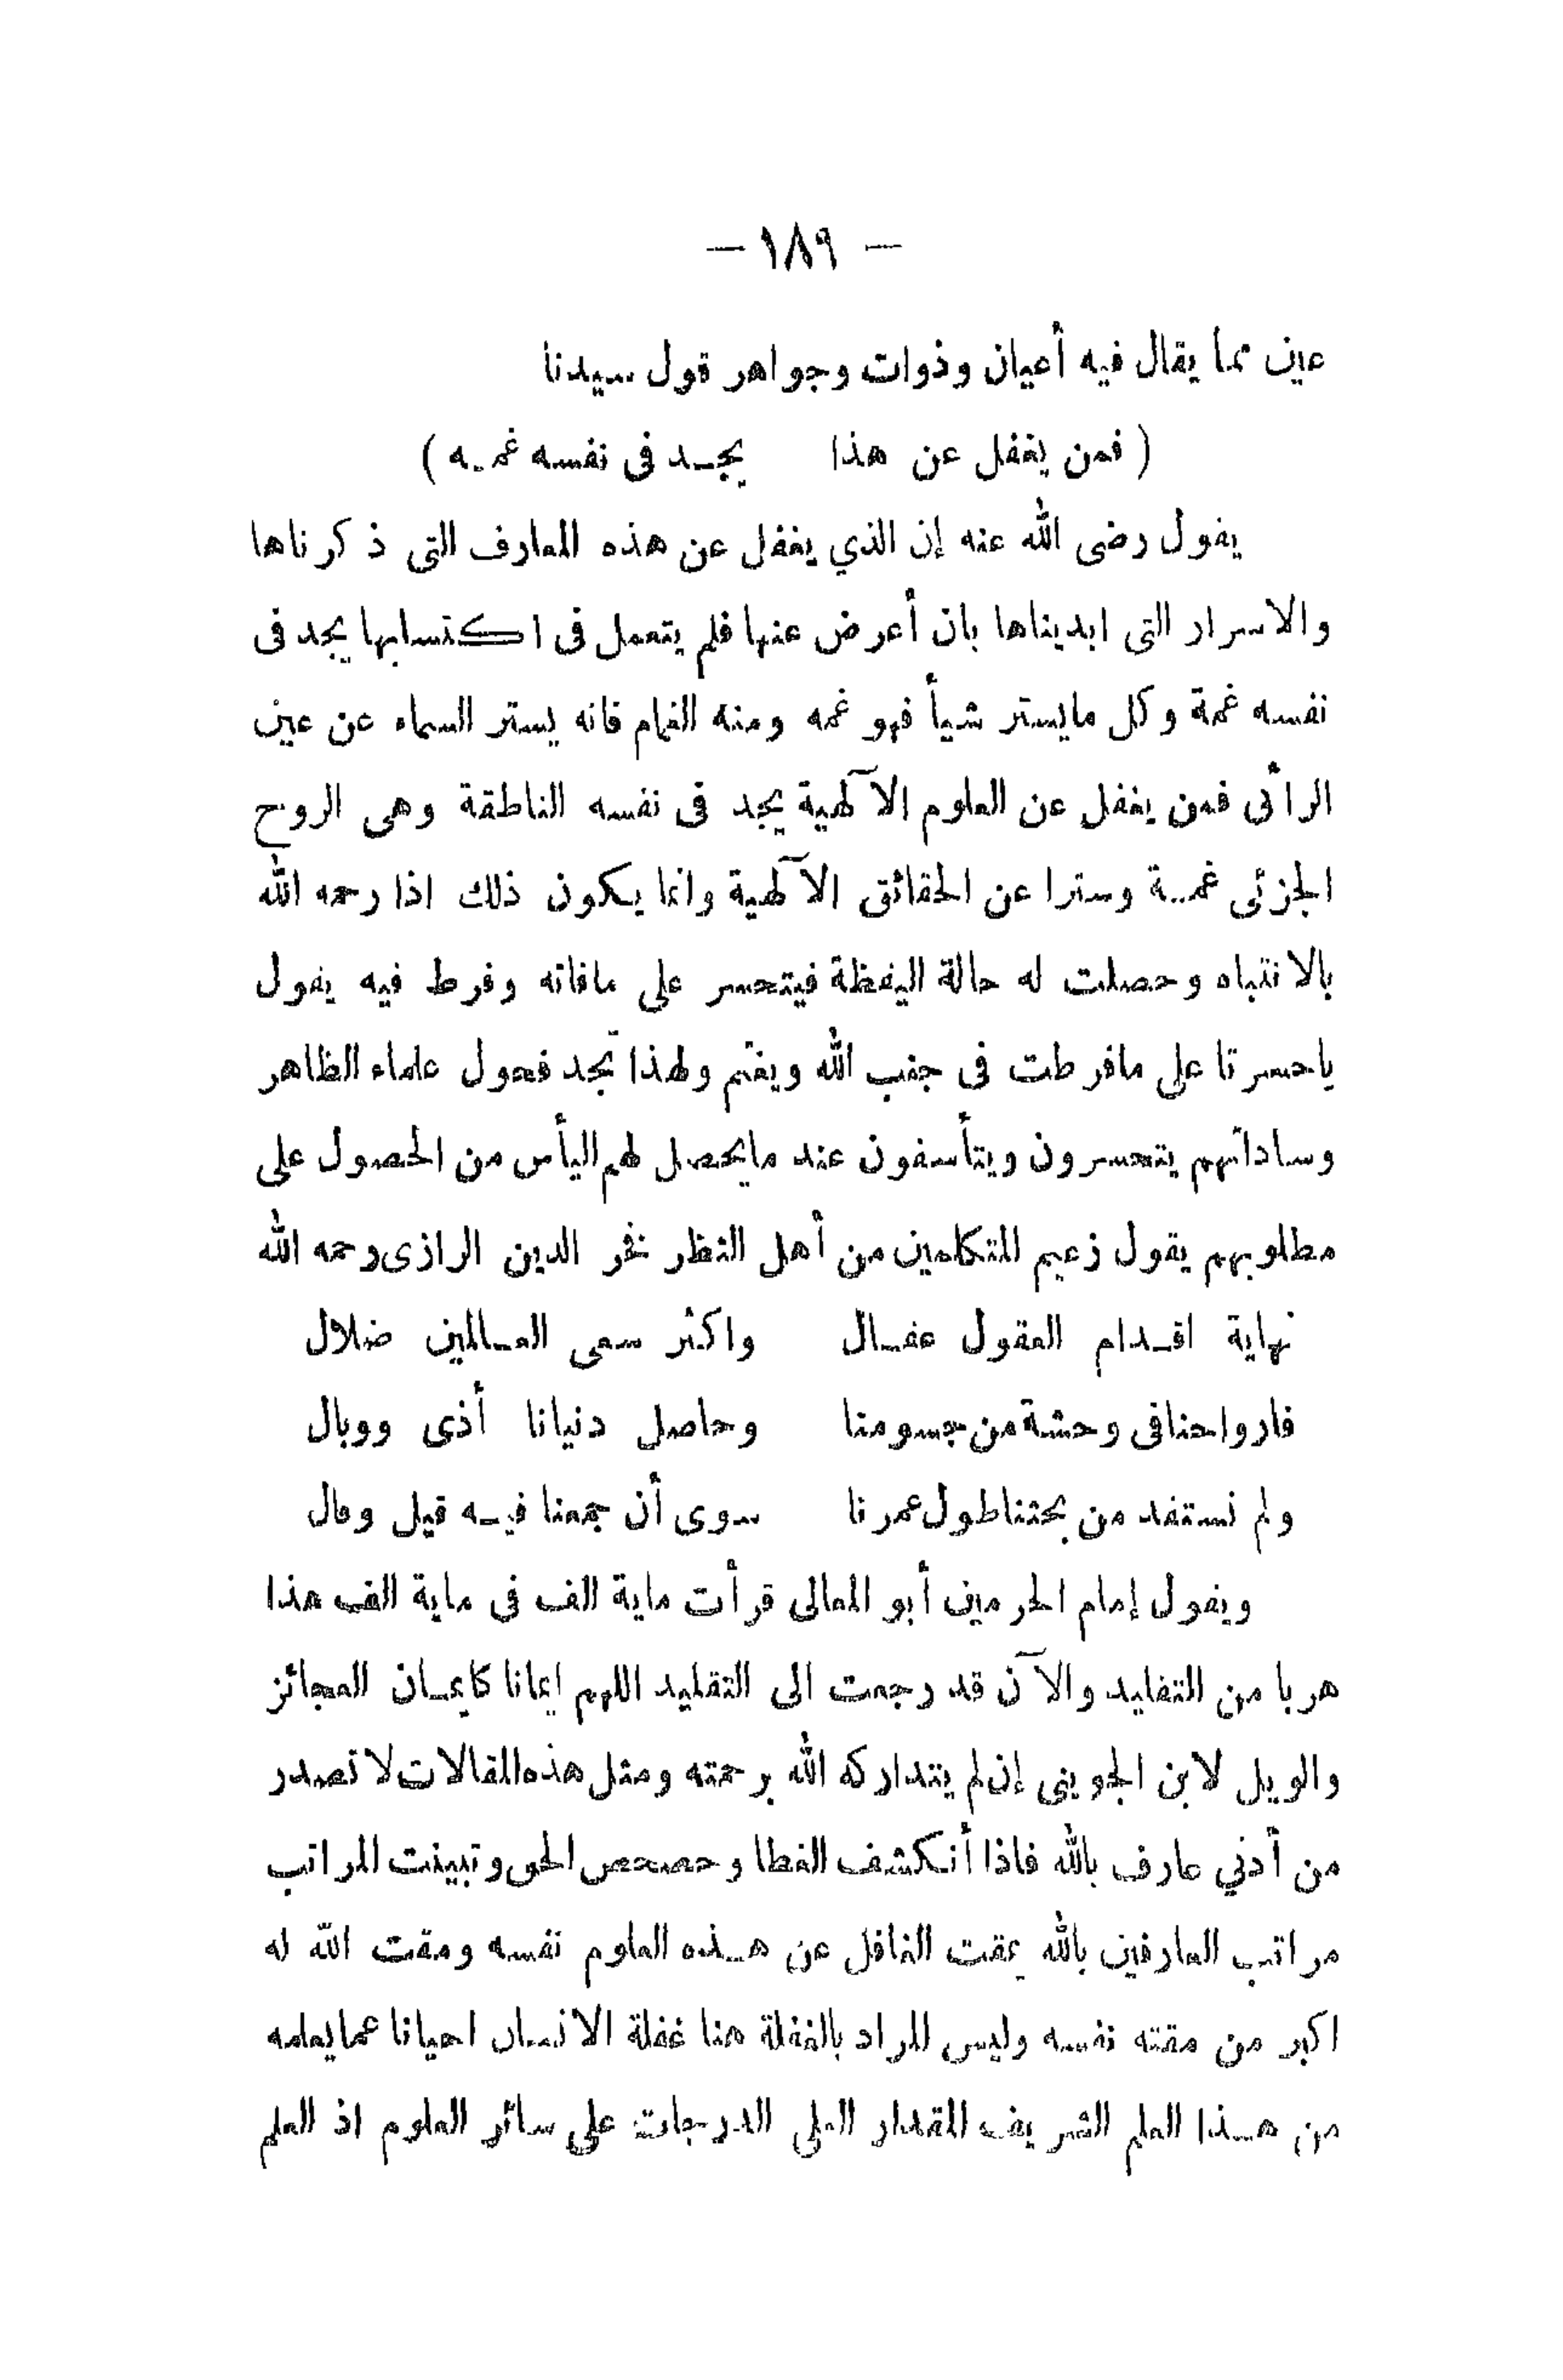 — ١٨٩ —
عين مما يقال فيه أعيان وذوات وجواهر قول سيدنا
( فمن يغفل عن هذا يجـد فى نفسه غمـه )
يقول رضى الله عنه إن الذي يغفل عن هذه المعارف التى ذكرناها
والاسرار التى ابديناها بان أعرض عنها فلم يتعمل فى اكتسابها يجد فى
نفسه غمة وكل مايستر شيأ فهو غمه ومنه الغمام فانه يستر السماء عن عين
الرأئى فمن يغفل عن العلوم الآلهية يجد فى نفسه الناطقة وهى الروح
الجزئى غمـة وسترا عن الحقائق الآلهية وانما يكون ذلك اذا رحمه الله
بالانتباه وحصلت له حالة اليقظة فيتحسر على مافاته وفرط فيه يقول
ياحسرتا على مافرطت فى جنب الله ويغتم ولهذا تجد فحول علماء الظاهر
وساداتهم يتحسرون ويتأسفون عند مايحصل لهم اليأس من الحصول على
مطلوبهم يقول زعيم المتكلمين من أهل النظر فخر الدين الرازى رحمه الله
نهاية اقـدام العقول عقـال واكثر سعى العـالمين ضلال
فارواحنا فى وحشة من جسومنا وحاصل دنيانا أذى ووبال
ولم نستفد من بحثنا طول عمرنا سوى أن جمعنا فيـه قيل وقال
ويقول إمام الحرمين أبو المعالى قرأت ماية الف فى ماية الف هذا
هربا من التقليد والآن قد رجعت الى التقليد اللهم ايمانا كايمـان العجائز
والويل لابن الجوينى إن لم يتداركه الله برحمته ومثل هذه المقالات لا تصدر
من أدني عارف بالله فاذا أنكشف الغطا وحصحص الحق وتبينت المراتب
مراتب العارفين بالله يمقت الغافل عن هـذه العلوم نفسه ومقت الله له
اكبر من مقته نفسه وليس المراد بالغفلة هنا غفلة الانسان احيانا عما يعلمه
من هـذا العلم الشريف المقدار العلى الدرجات على سائر العلوم اذ العلم